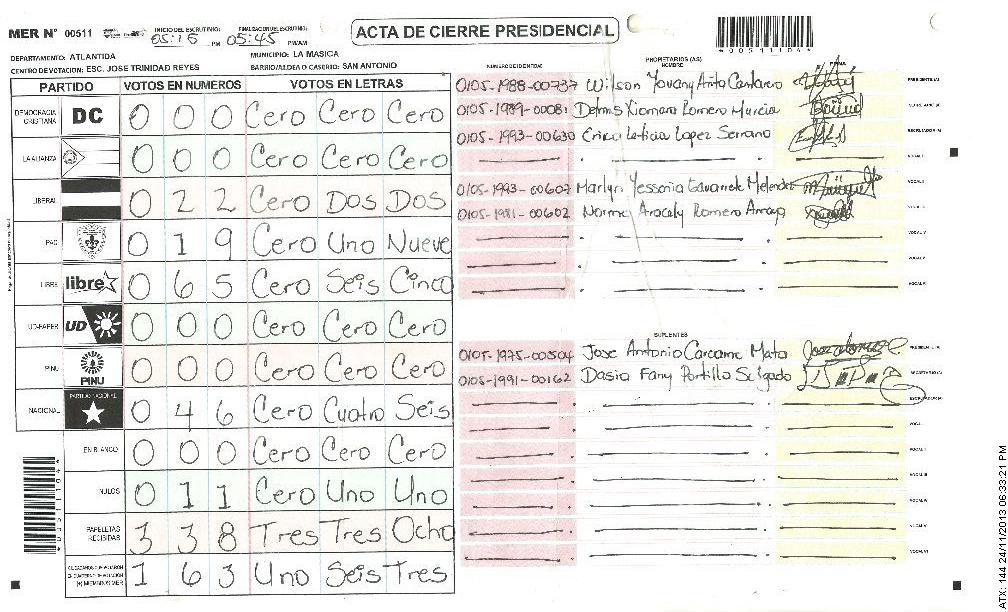 MER N° 00511
INICIO DEL ESCRUTINIO: 05:16 PM
FINALIZACION DEL ESCRUTINIO: 05:45 PM/AM
ACTA DE CIERRE PRESIDENCIAL
*00511104*
DEPARTAMENTO: ATLANTIDA
MUNICIPIO: LA MASICA
CENTRO DE VOTACION: ESC. JOSE TRINIDAD REYES
BARRIO/ALDEA O CASERIO: SAN ANTONIO
PARTIDO VOTOS EN NUMEROS VOTOS EN LETRAS
DEMOCRACIA CRISTIANA DC 0 0 0 Cero Cero Cero
LA ALIANZA 0 0 0 Cero Cero Cero
LIBERAL 0 2 2 Cero Dos Dos
PAC 0 1 9 Cero Uno Nueve
LIBRE libre 0 6 5 Cero Seis Cinco
UD-FAPER UD 0 0 0 Cero Cero Cero
PINU PINU 0 0 0 Cero Cero Cero
NACIONAL PARTIDO NACIONAL 0 4 6 Cero Cuatro Seis
EN BLANCO 0 0 0 Cero Cero Cero
NULOS 0 1 1 Cero Uno Uno
PAPELETAS RECIBIDAS 3 3 8 Tres Tres Ocho
CIUDADANOS QUE VOTARON EN CUADERNO DE VOTACION (+) MIEMBROS MER 1 6 3 Uno Seis Tres
*00511104*
PROPIETARIOS (AS)
NUMERO DE IDENTIDAD NOMBRE FIRMA
0105-1988-00737 Wilson Yovany Cantarero PRESIDENTE (A)
0105-1989-00081 Xiomara Romero Murcia SECRETARIO (A)
0105-1993-00630 Erica Leticia Lopez Serrano ESCRUTADOR (A)
VOCAL I
0105-1993-00607 Marlyn Yessenia Melendez VOCAL II
0105-1981-00602 Norma Aracely Romero VOCAL III
VOCAL IV
VOCAL V
VOCAL VI
SUPLENTES
0105-1975-00504 Jose Antonio Carcamo Mata PRESIDENTE (A)
0105-1991-00162 Dasia Fany Portillo Salgado SECRETARIO (A)
ESCRUTADOR (A)
VOCAL I
VOCAL II
VOCAL III
VOCAL IV
VOCAL V
VOCAL VI
ATX: 144 24/11/2013 06:33:21 PM